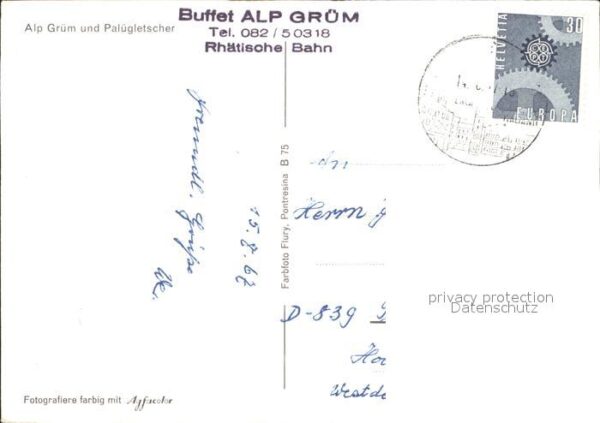 Alp Grüm und Palügletscher
Buffet ALP GRÜM
Tel. 082 / 50318
Rhätische Bahn
HELVETIA
30
EUROPA
Freundl. Grüße
15.8.67
Farbfoto Flury, Pontresina B 75
An
Herrn
D-839
Westde
privacy protection
Datenschutz
Fotografiere farbig mit Agfacolor